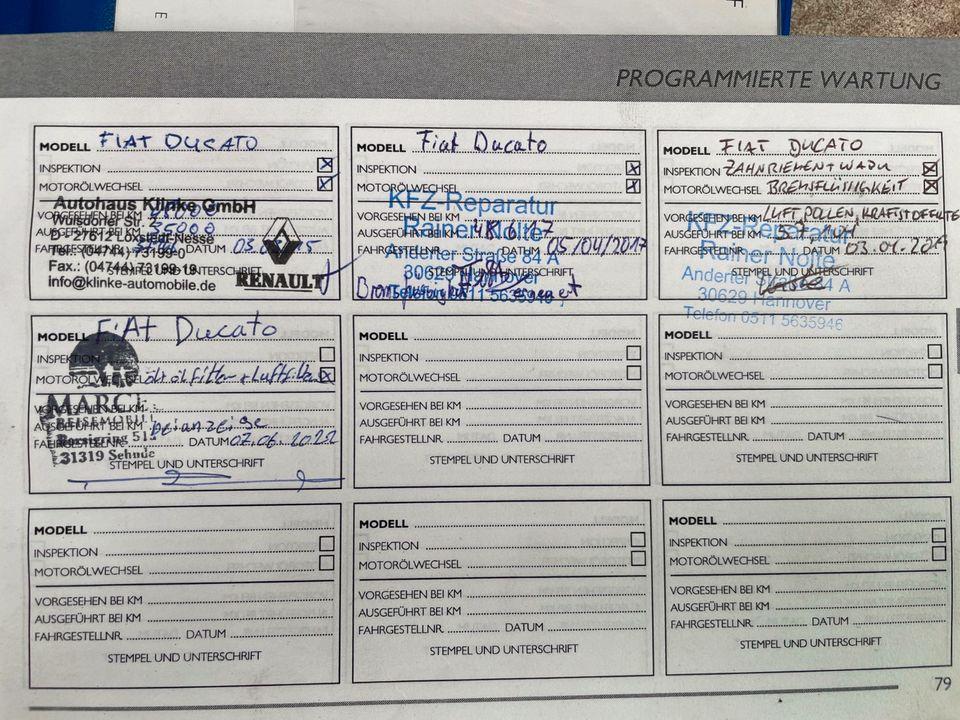 PROGRAMMIERTE WARTUNG
MODELL FIAT DUCATO
INSPEKTION
MOTORÖLWECHSEL
Autohaus Klinke GmbH
VORGESEHEN BEI KM
Wulsdorfer Str.
AUSGEFÜHRT BEI KM 35000
D - 27612 Loxstedt-Nesse
FAHRGESTELLNR. DATUM
Tel.: (04744) 73199-0
Fax.: (04744) 73199-19
STEMPEL UND UNTERSCHRIFT
Info@klinke-automobile.de
RENAULT
MODELL Fiat Ducato
INSPEKTION
MOTORÖLWECHSEL
KFZ-Reparatur
VORGESEHEN BEI KM
Rainer Nolte
AUSGEFÜHRT BEI KM
FAHRGESTELLNR. DATUM 05/04/2017
Anderter Straße 84 A
30629 Hannover
STEMPEL UND UNTERSCHRIFT
Telefon 0511 5635946
MODELL FIAT DUCATO
INSPEKTION ZAHNRIEMEN + WAPU
MOTORÖLWECHSEL BREMSFLÜSSIGKEIT
VORGESEHEN BEI KM LUFT, POLLEN, KRAFTSTOFFILTER
KFZ-Reparatur
AUSGEFÜHRT BEI KM
FAHRGESTELLNR. DATUM 03.01.2019
Rainer Nolte
STEMPEL UND UNTERSCHRIFT
Anderter Straße 84 A
30629 Hannover
Telefon 0511 5635946
MODELL FIAT Ducato
INSPEKTION
MOTORÖLWECHSEL
MARC
VORGESEHEN BEI KM
REISEMOBIL
AUSGEFÜHRT BEI KM
Borsigring 51
FAHRGESTELLNR. DATUM 07.06.2022
31319 Sehnde
STEMPEL UND UNTERSCHRIFT
MODELL
INSPEKTION
MOTORÖLWECHSEL
VORGESEHEN BEI KM
AUSGEFÜHRT BEI KM
FAHRGESTELLNR. DATUM
STEMPEL UND UNTERSCHRIFT
MODELL
INSPEKTION
MOTORÖLWECHSEL
VORGESEHEN BEI KM
AUSGEFÜHRT BEI KM
FAHRGESTELLNR. DATUM
STEMPEL UND UNTERSCHRIFT
MODELL
INSPEKTION
MOTORÖLWECHSEL
VORGESEHEN BEI KM
AUSGEFÜHRT BEI KM
FAHRGESTELLNR. DATUM
STEMPEL UND UNTERSCHRIFT
MODELL
INSPEKTION
MOTORÖLWECHSEL
VORGESEHEN BEI KM
AUSGEFÜHRT BEI KM
FAHRGESTELLNR. DATUM
STEMPEL UND UNTERSCHRIFT
MODELL
INSPEKTION
MOTORÖLWECHSEL
VORGESEHEN BEI KM
AUSGEFÜHRT BEI KM
FAHRGESTELLNR. DATUM
STEMPEL UND UNTERSCHRIFT
79